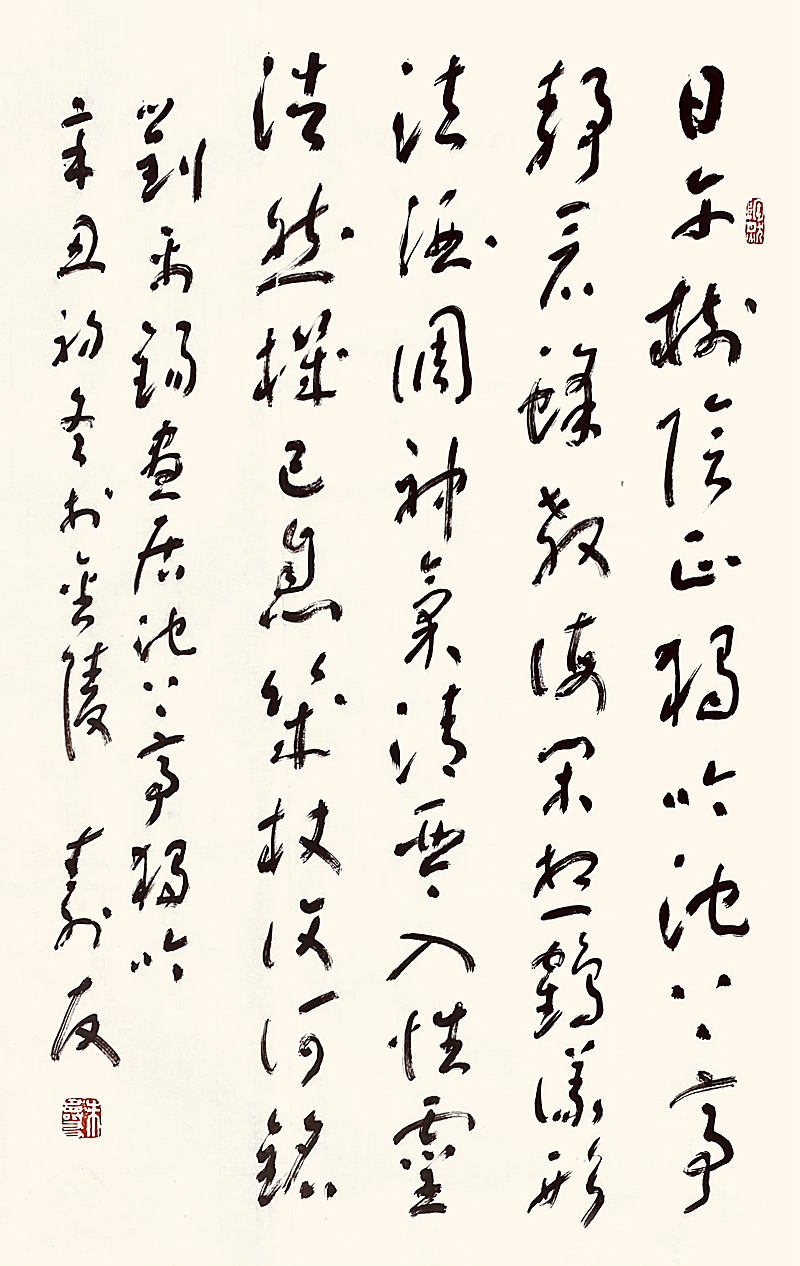 日午樹陰正獨吟池上亭
靜看蜂教誨閑想鶴儀形
法酒調神氣清琴入性靈
浩然機已息幾杖復何銘
劉禹錫晝居池上亭獨吟
辛丑初冬於金陵 壽友
朱壽友